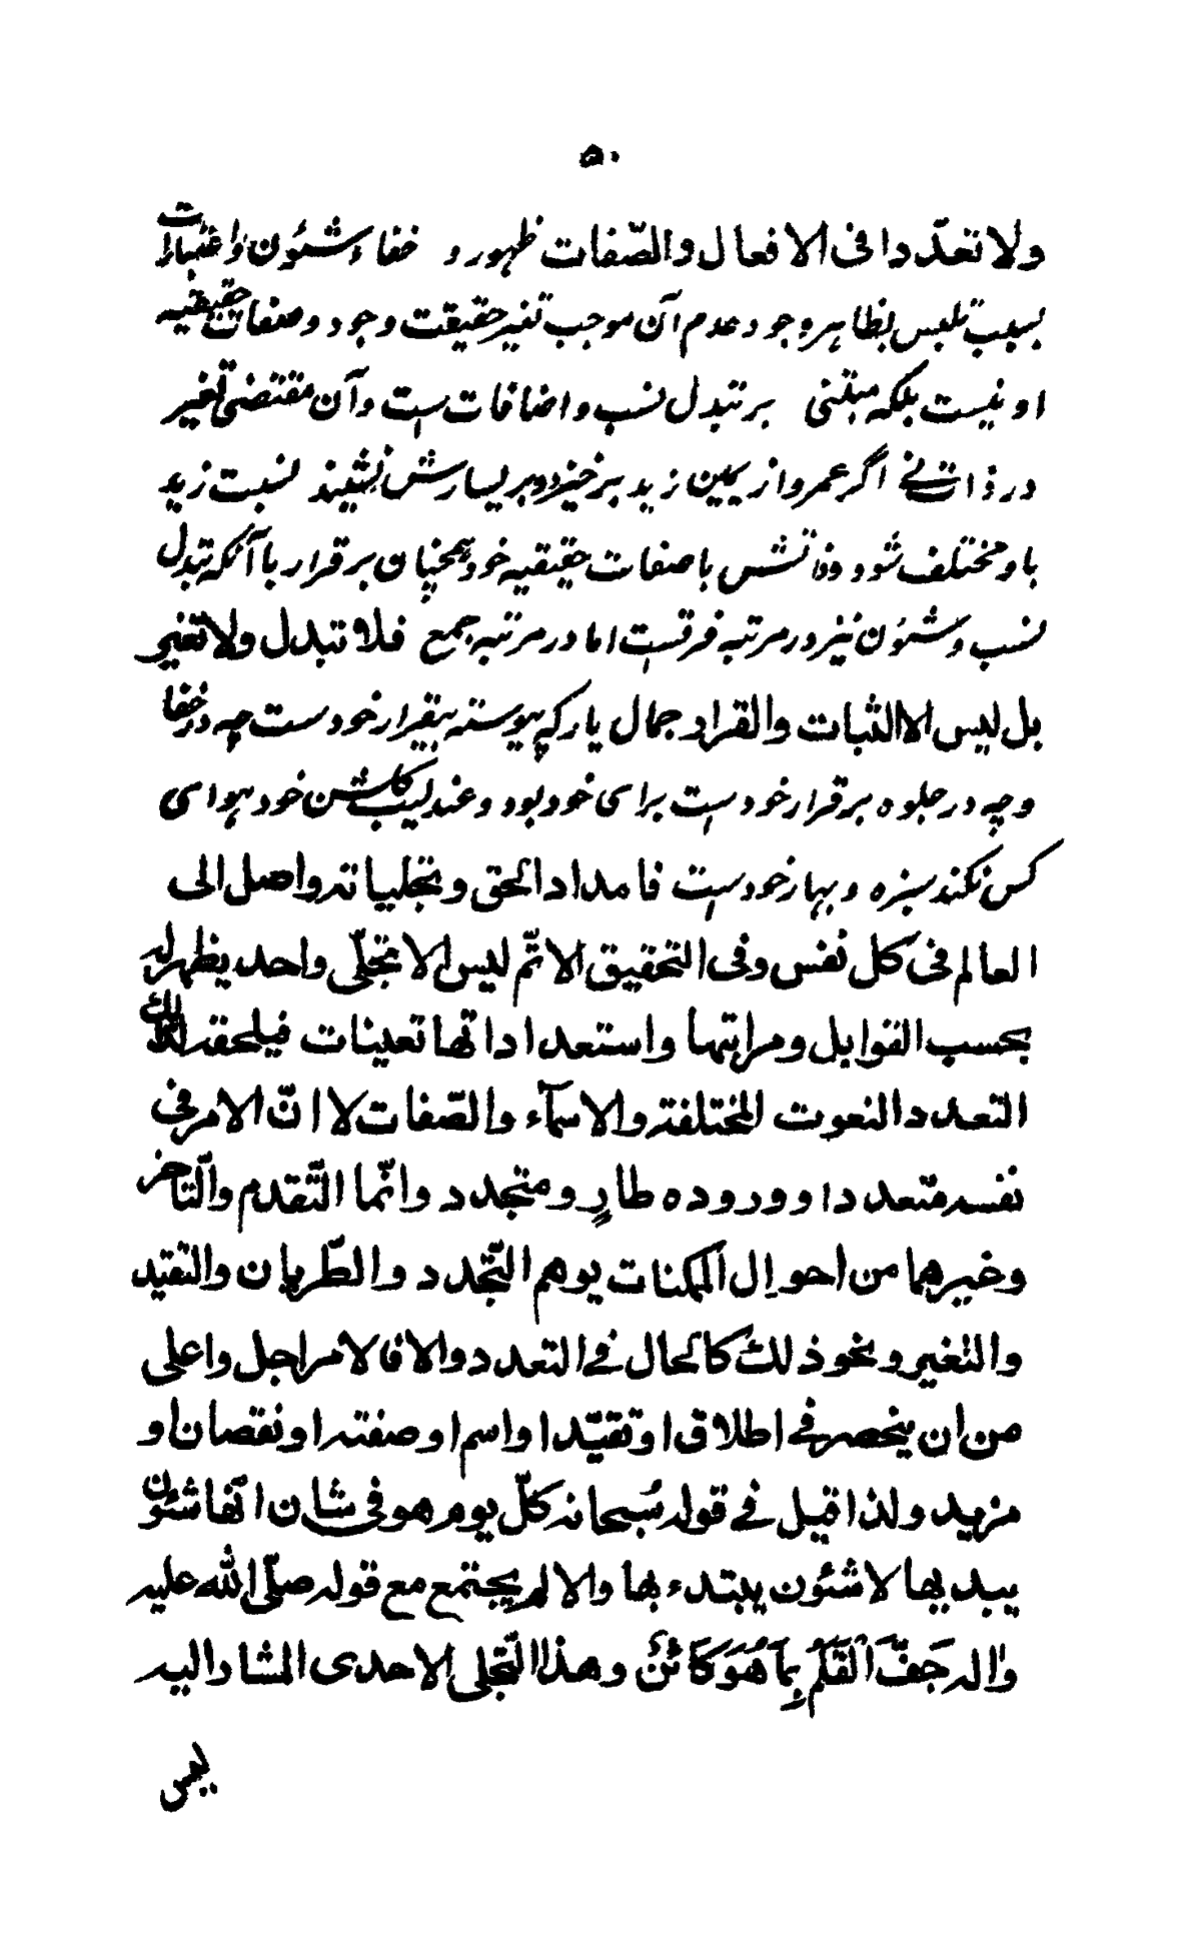 ۵۰
ولا تعدّدا فی الافعال والصّفات ظهور و خفاء شئون واعتبارات
بسبب تلبس بظاهر وجود عدم آن موجب تغیر حقیقت وجود و صفات حقیقیه
او نیست بلکه مبتنی بر تبدل نسب و اضافات ست و آن مقتضی تغیر
در ذات نے اگر عمرو از یمین زید برخیزد و بر یسارش نشیند نسبت زید
با و مختلف شود و ذاتش با صفات حقیقیه خود همچنان برقرار با آنکه تبدل
نسب و شئون نیز در مرتبه فرقست اما در مرتبه جمع فلا تبدل ولا تغیر
بل لیس الا الثبات والقرار جمال یار که پیوسته بیقرار خودست چه در خفا
و چه در جلوه برقرار خودست برای خود بود و عندلیب گلشن خود هوای
کس نکند سبزه و بهار خودست فامداد الحق و تجلیاته واصل الی
العالم فی کل نفس وفی التحقیق الاتمّ لیس الا تجلّی واحد یظهر له
بحسب القوابل ومراتبها واستعداداتها تعینات فیلحقه لذلك
التعدد النعوت المختلفة والاسمآء والصّفات لا انّ الامر فی
نفسه متعددا وورودہ طارٍ ومتجدد وانّما التّقدم والتّاخر
وغیرهما من احوال الممکنات یوهم التّجدد والطّریان والتقید
والتغیر ونحو ذلك کالحال فے التعدد والا فالامر اجل واعلی
من ان ینحصر فے اطلاق او تقیّد او اسم او صفته او نقصان او
مزید ولذا قیل فے قوله سُبحانه کلّ یوم هو فی شان انّها شئون
یبدیها لا شئون یبتدء بها والا لم یجتمع مع قوله صلّی الله علیه
واله جَفَّ الْقَلَمُ بِمَا هُوَ کَائنٌ وهذا التّجلی الاحدی المشار الیه
لیس